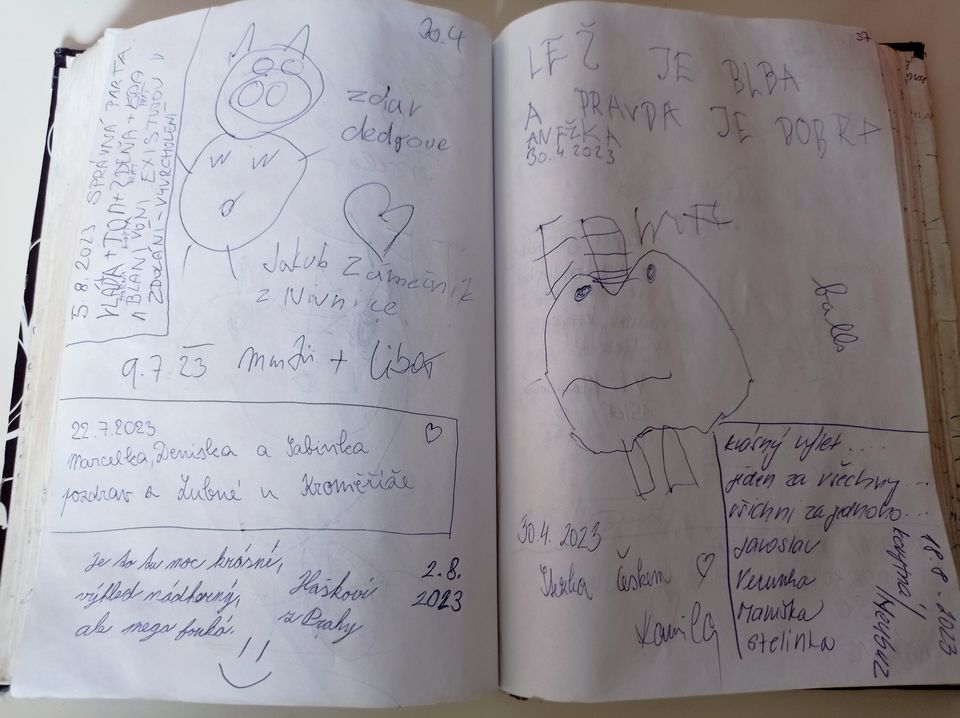 30.4
5.8.2023 SPRÁVNÁ PARTA
VLÁĎA + TOM + ZDEŇA + EDA
ABLANÍ VONI EXISTUJOU
ZDOLÁNÍ - VYVRCHOLENÍ
zdar
dedrove
Jakub Zámečník
z Nivnice
9.7.23 + Libor
22.7.2023
Marcelka, Deniska a Sabinka
pozdrav z Lubné u Kroměříže
Je to tu moc krásné,
výhled nádherný,
ale mega fouká.
Háškovi
z Prahy
2.8.
2023
37
LEŽ JE BLBA
A PRAVDA JE DOBRA
ANEŽKA
30.4.2023
balls
30.4.2023
Českem
Kamila
krásný výlet....
jeden za všechny...
všichni za jednoho...
Jaroslav
Verunka
Maruška
Stelinka
18.8.2023